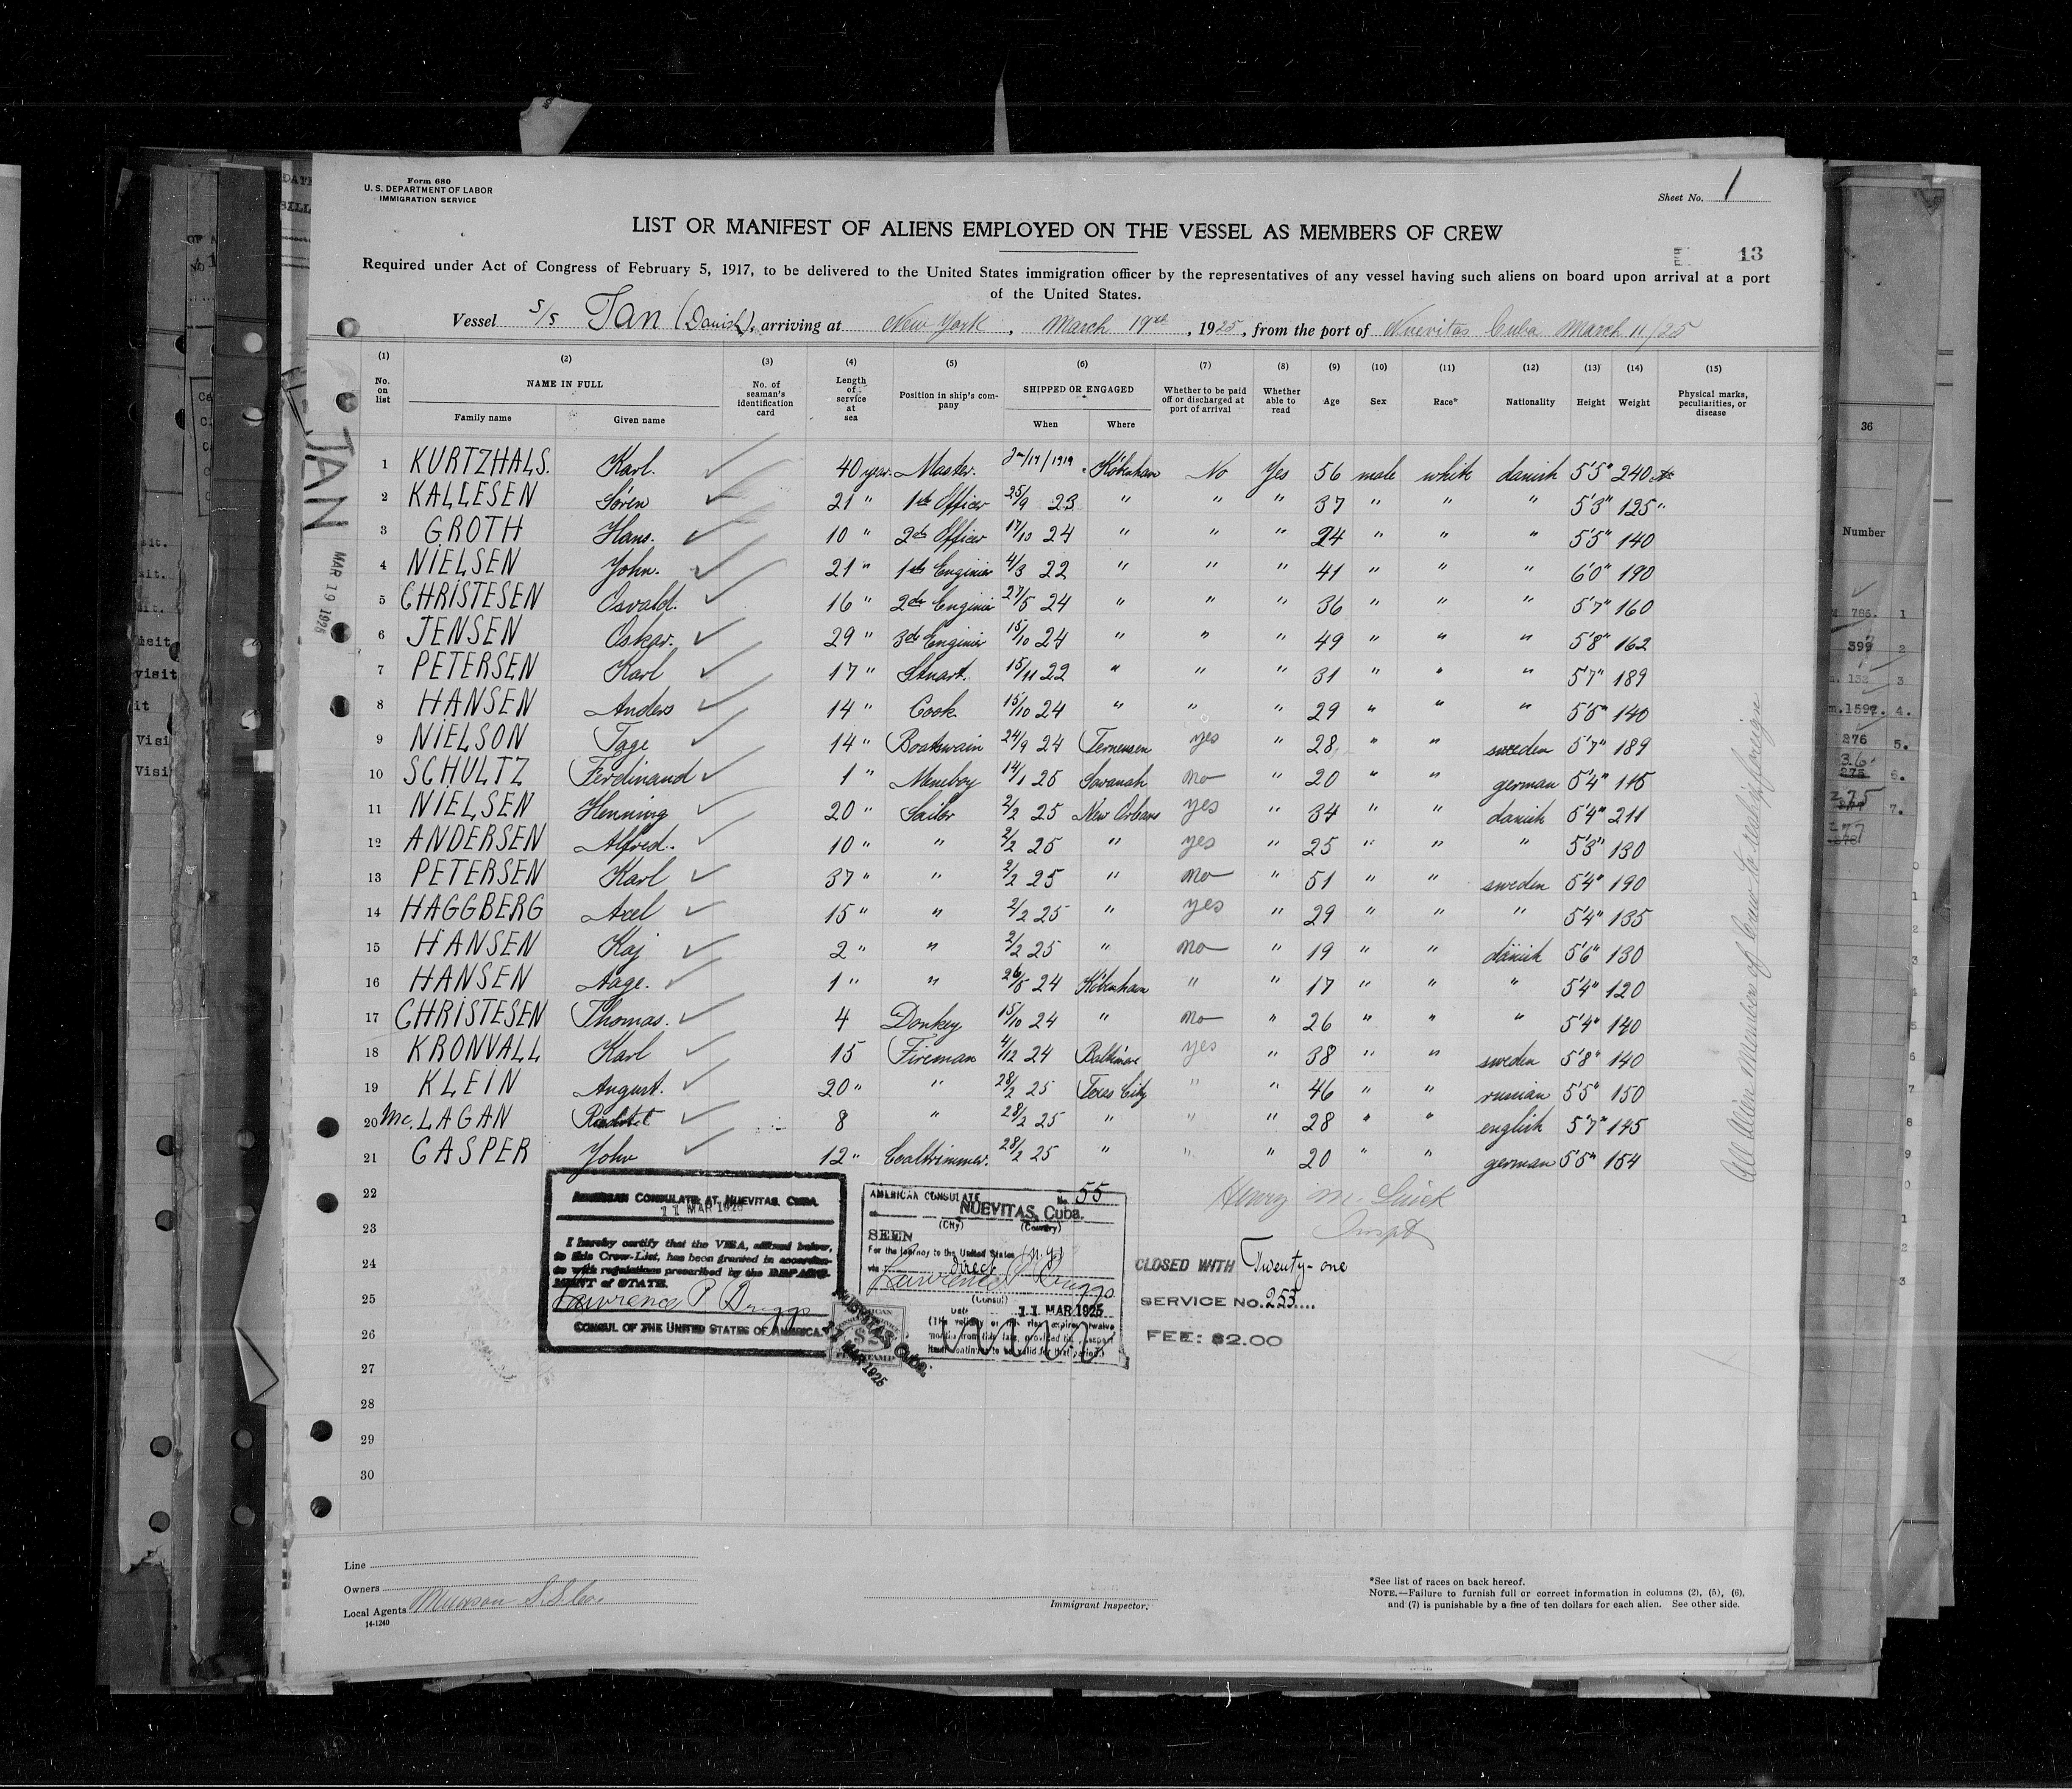 Form 680
U. S. DEPARTMENT OF LABOR
IMMIGRATION SERVICE
Sheet No. 1
LIST OR MANIFEST OF ALIENS EMPLOYED ON THE VESSEL AS MEMBERS OF CREW
13
Required under Act of Congress of February 5, 1917, to be delivered to the United States immigration officer by the representatives of any vessel having such aliens on board upon arrival at a port
of the United States.
Vessel S/S Jan (Danish), arriving at New York, March 19th, 1925, from the port of Nuevitas Cuba March 11/25
(1) (2) (3) (4) (5) (6) (7) (8) (9) (10) (11) (12) (13) (14) (15)
No. on list NAME IN FULL Family name Given name No. of seaman's identification card Length of service at sea Position in ship's company SHIPPED OR ENGAGED When Where Whether to be paid off or discharged at port of arrival Whether able to read Age Sex Race* Nationality Height Weight Physical marks, peculiarities, or disease
1 KURTZHALS. Karl. 40 year. Master. /1919 Köbenhavn No Yes 56 male white danish 5'5" 240
2 KALLESEN Sören 21 " 1ste Officer 25/9 23 " " " 37 " " " 5'3" 125 "
3 GROTH Hans. 10 " 2de Officer 17/10 24 " " " 24 " " " 5'5" 140
4 NIELSEN John. 21 " 1ste Enginier 4/3 22 " " " 41 " " " 6'0" 190
5 CHRISTESEN Osvald. 16 " 2de Enginier 27/5 24 " " " 36 " " " 5'7" 160
6 JENSEN Oskar. 29 " 3de Enginier 15/10 24 " " " 49 " " " 5'8" 162
7 PETERSEN Karl 17 " Stuart. 15/11 22 " " " 31 " " " 5'7" 189
8 HANSEN Anders 14 " Cook. 15/10 24 " " " 29 " " " 5'5" 140
9 NIELSON Tage 14 " Boatswain 24/9 24 yes " 28 " " sweden 5'7" 189
10 SCHULTZ Ferdinand 1 " Messboy 14/1 25 Savanah no " 20 " " german 5'4" 115
11 NIELSEN Henning 20 " Sailor 2/2 25 New Orleans yes " 34 " " danish 5'4" 211
12 ANDERSEN Alfred. 10 " " 2/2 25 " yes " 25 " " " 5'3" 130
13 PETERSEN Karl 37 " " 2/2 25 " no " 51 " " sweden 5'4" 190
14 HAGGBERG Axel 15 " " 2/2 25 " yes " 29 " " " 5'4" 135
15 HANSEN Kaj 2 " " 2/2 25 " no " 19 " " danish 5'6" 130
16 HANSEN Aage. 1 " " 26/5 24 Köbenhavn " " 17 " " " 5'4" 120
17 CHRISTESEN Thomas. 4 Donkey 15/10 24 " no " 26 " " " 5'4" 140
18 KRONVALL Karl 15 Fireman 4/12 24 Baltimore yes " 38 " " sweden 5'8" 140
19 KLEIN August. 20 " " 28/2 25 Texas City " " 46 " " russian 5'5" 150
20 Mc. LAGAN 8 " 28/2 25 " " " 28 " " english 5'7" 145
21 CASPER John 12 " Coaltrimmer. 28/2 25 " " " 20 " " german 5'5" 154
22
23
24
25
26
27
28
29
30
JAN
MAR 19 1925
All Alien Members of Crew to reship foreign
AMERICAN CONSULATE AT NUEVITAS, CUBA.
11 MAR 1925
I hereby certify that the VISA, affixed below,
to this Crew-List, has been granted in accordan-
ce with regulations prescribed by the DEPART-
MENT of STATE.
Lawrence P Briggs
CONSUL OF THE UNITED STATES OF AMERICA.
AMERICAN CONSULATE No. 55
NUEVITAS, Cuba.
(City) (Country)
SEEN
For the journey to the United States (N.Y.)
via direct
Lawrence P Briggs
(Consul)
Date 11 MAR 1925
(The validity of this visa expires twelve
months from this date, provided the passport
itself continues to be valid for that period.)
NUEVITAS, Cuba.
MAR 1925
Henry M.
Inspt
CLOSED WITH Twenty-one
SERVICE No. 255
FEE: $2.00
Line
Owners
Local Agents Munson S.S. Co.
14-1240
Immigrant Inspector.
*See list of races on back hereof.
NOTE.—Failure to furnish full or correct information in columns (2), (5), (6),
and (7) is punishable by a fine of ten dollars for each alien. See other side.
36
Number